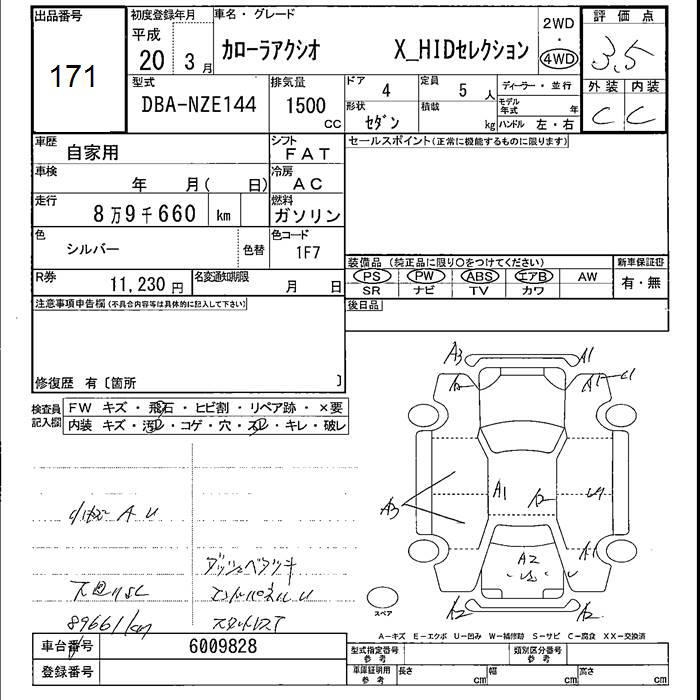 出品番号
171
初度登録年月
平成
20 3月
車名・グレード
カローラアクシオ X_HIDセレクション
2WD
・
4WD
評価点
3.5
外装 内装
C C
型式
DBA-NZE144
排気量
1500
CC
ドア
4
定員
5 人
形状
セダン
積載
kg
ディーラー・並行
モデル年式 年
ハンドル 左・右
車歴
自家用
シフト
FAT
セールスポイント(正常に機能するものに限ります)
車検
年 月( 日)
冷房
AC
走行
8万9千660 km
燃料
ガソリン
色
シルバー
色替
色コード
1F7
装備品(純正品に限り○をつけてください)
新車保証書
PS PW ABS エアB AW
SR ナビ TV カワ
有・無
R券
11,230円
名変通知期限
月 日
後日品
注意事項申告欄(不具合内容等は具体的に記入して下さい)
修復歴 有〔箇所 〕
検査員記入欄
FW キズ・飛石・ヒビ割・リペア跡・×要
内装 キズ・汚レ・コゲ・穴・スレ・キレ・破レ
A3 A1
A1 U
A3
A1
A2
A2
A2 A2
小キズ A U
ダッシュベタツキ
エンドパネルU
89661km
スペア
A-キズ E-エクボ U-凹み W-補修跡 S-サビ C-腐食 XX-交換済
車台番号
6009828
登録番号
型式指定番号
参考
類別区分番号
参考
車庫証明用
参考
長さ cm 幅 cm 高さ cm